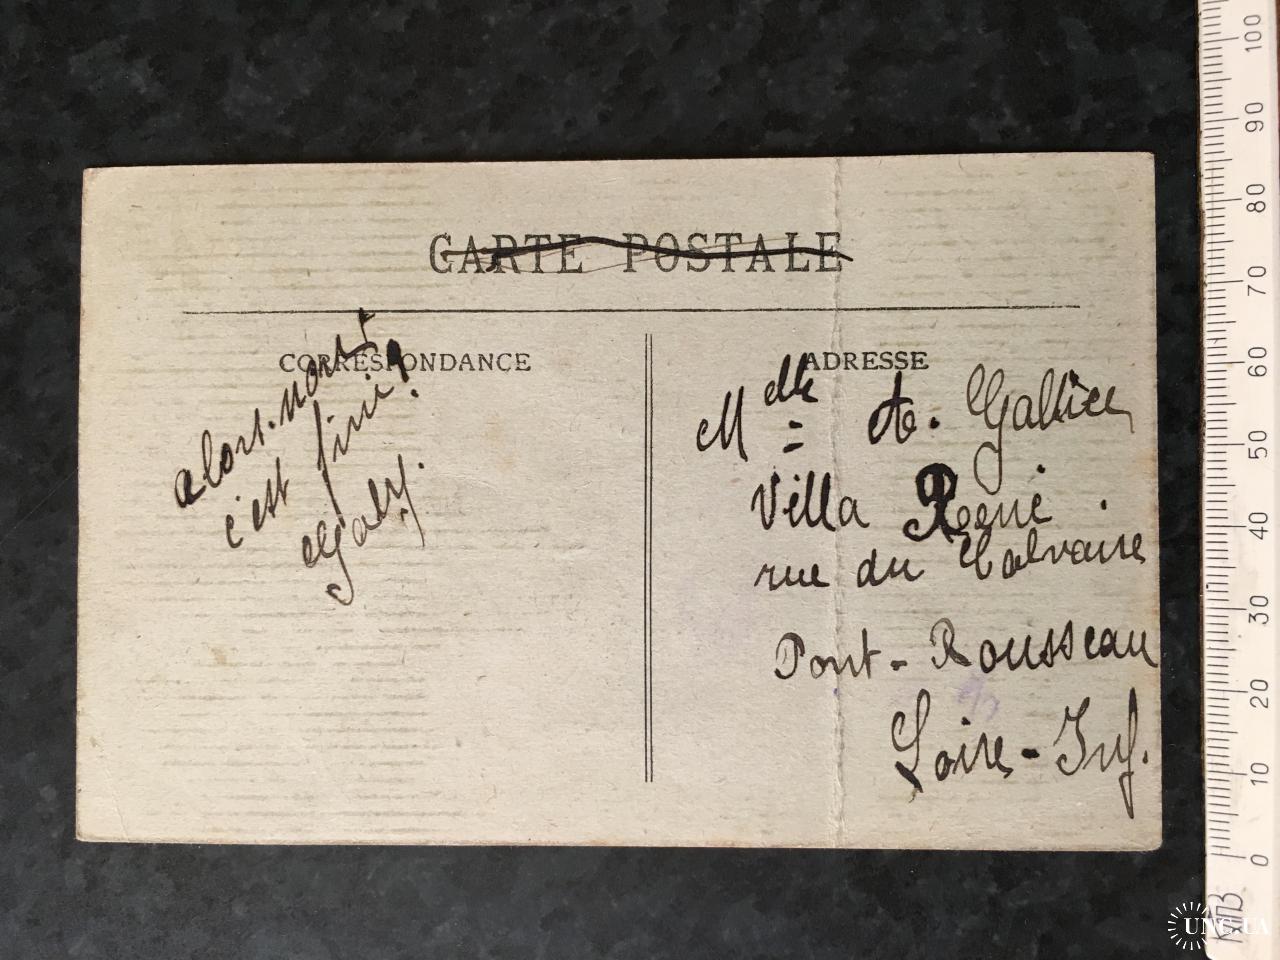 CARTE POSTALE
CORRESPONDANCE
alors. mort
c'est fini!
Galy.
ADRESSE
Mdlle A.
Villa René.
rue du Calvaire
Pont-Rousseau
Loire-Inf.
100
90
80
70
60
50
40
30
20
10
0
UNC.UA